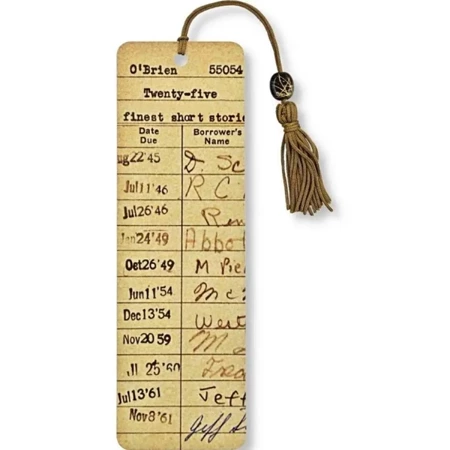 O'Brien 55054
Twenty-five
finest short storie
Date Due Borrower's Name
ug22'45 D. Sc
Jul11'46 R C
Jul26'46 Ren
Jan24'49 Abbo
Oct26'49 M Pie
Jun11'54
Dec13'54 West
Nov2059 M
25'60
Jul13'61 Jeff
Nov8'61 Jeff